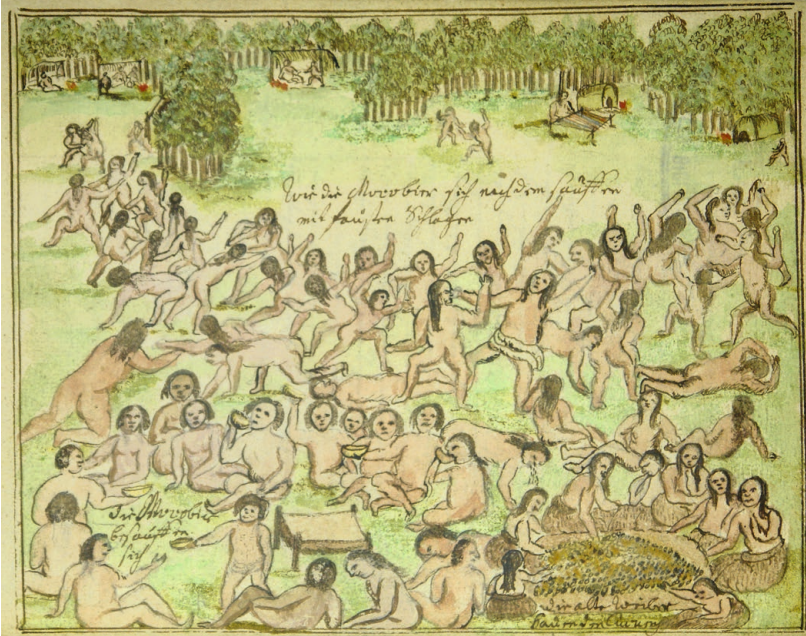 Wie die Mocobier sich nach dem sauffen
mit fausten Schlagen
die Mocobier
besauffen
sich
die alte Weiber
kauen den